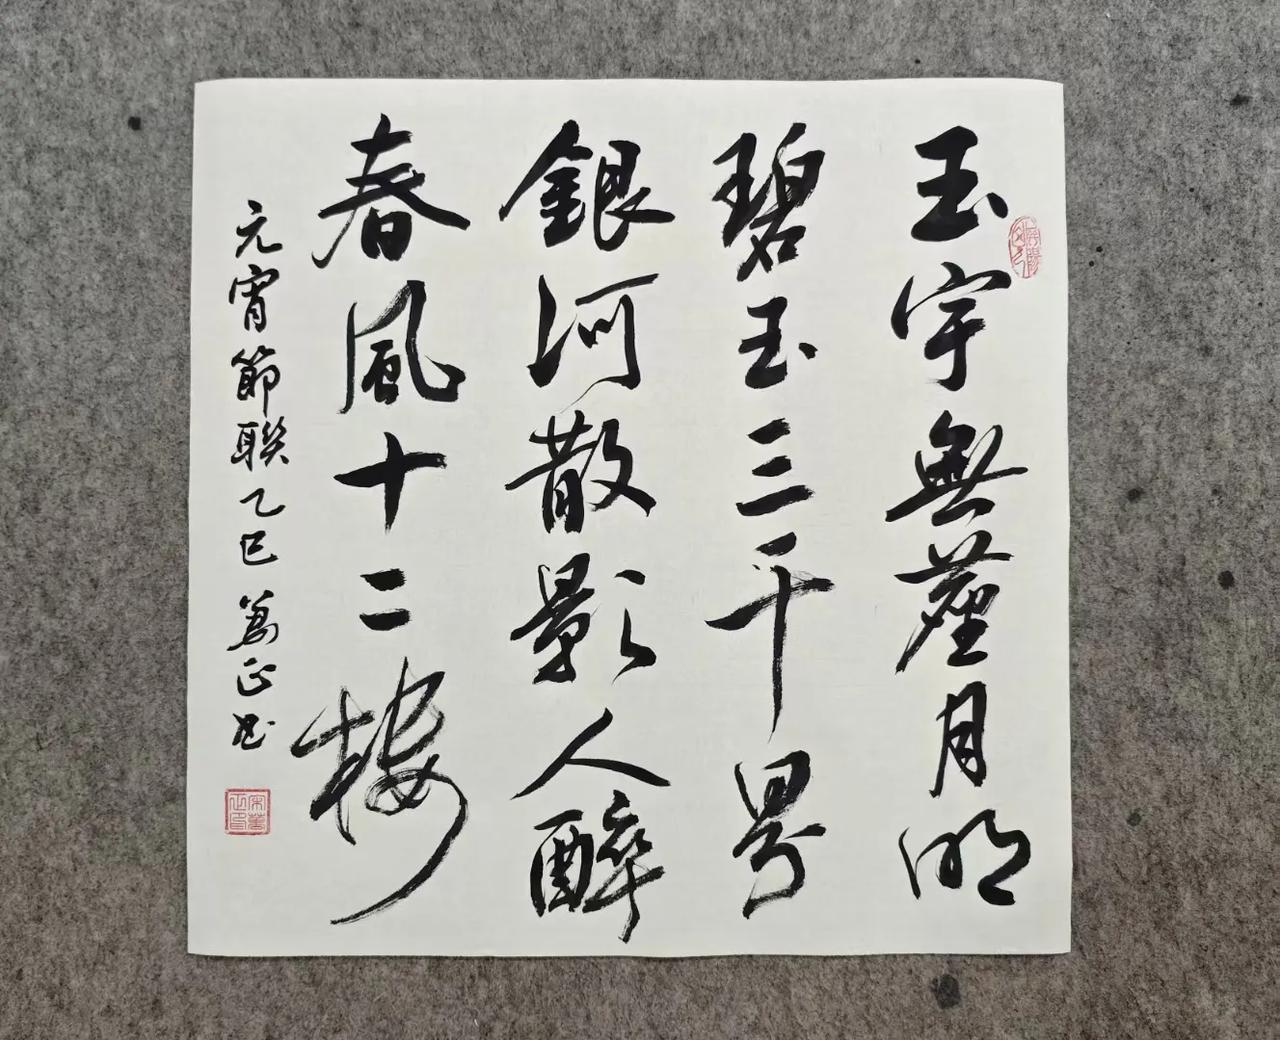 玉宇無塵月明
碧玉三千界
銀河散影人醉
春風十二樓
元宵節聯乙巳萬正书